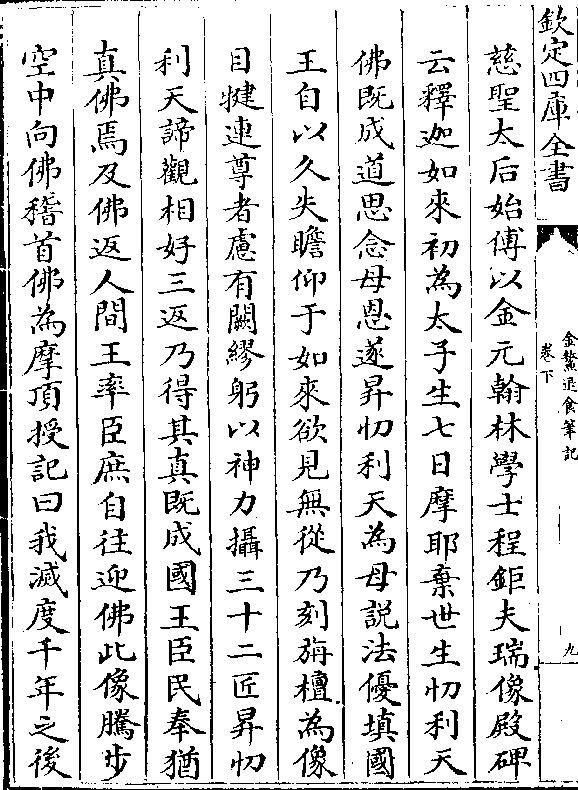 欽定四庫全書
金鰲退食筆記
卷下
九
慈聖太后始傅以金元翰林學士程鉅夫瑞像殿碑
云釋迦如來初為太子生七日摩耶棄世生忉利天
佛既成道思念母恩遂昇忉利天為母説法優填國
王自以久失瞻仰于如來欲見無從乃刻旃檀為像
目犍連尊者慮有闕繆躬以神力攝三十二匠昇忉
利天諦觀相好三返乃得其真既成國王臣民奉猶
真佛焉及佛返人間王率臣庶自往迎佛此像騰步
空中向佛稽首佛為摩頂授記曰我滅度千年之後